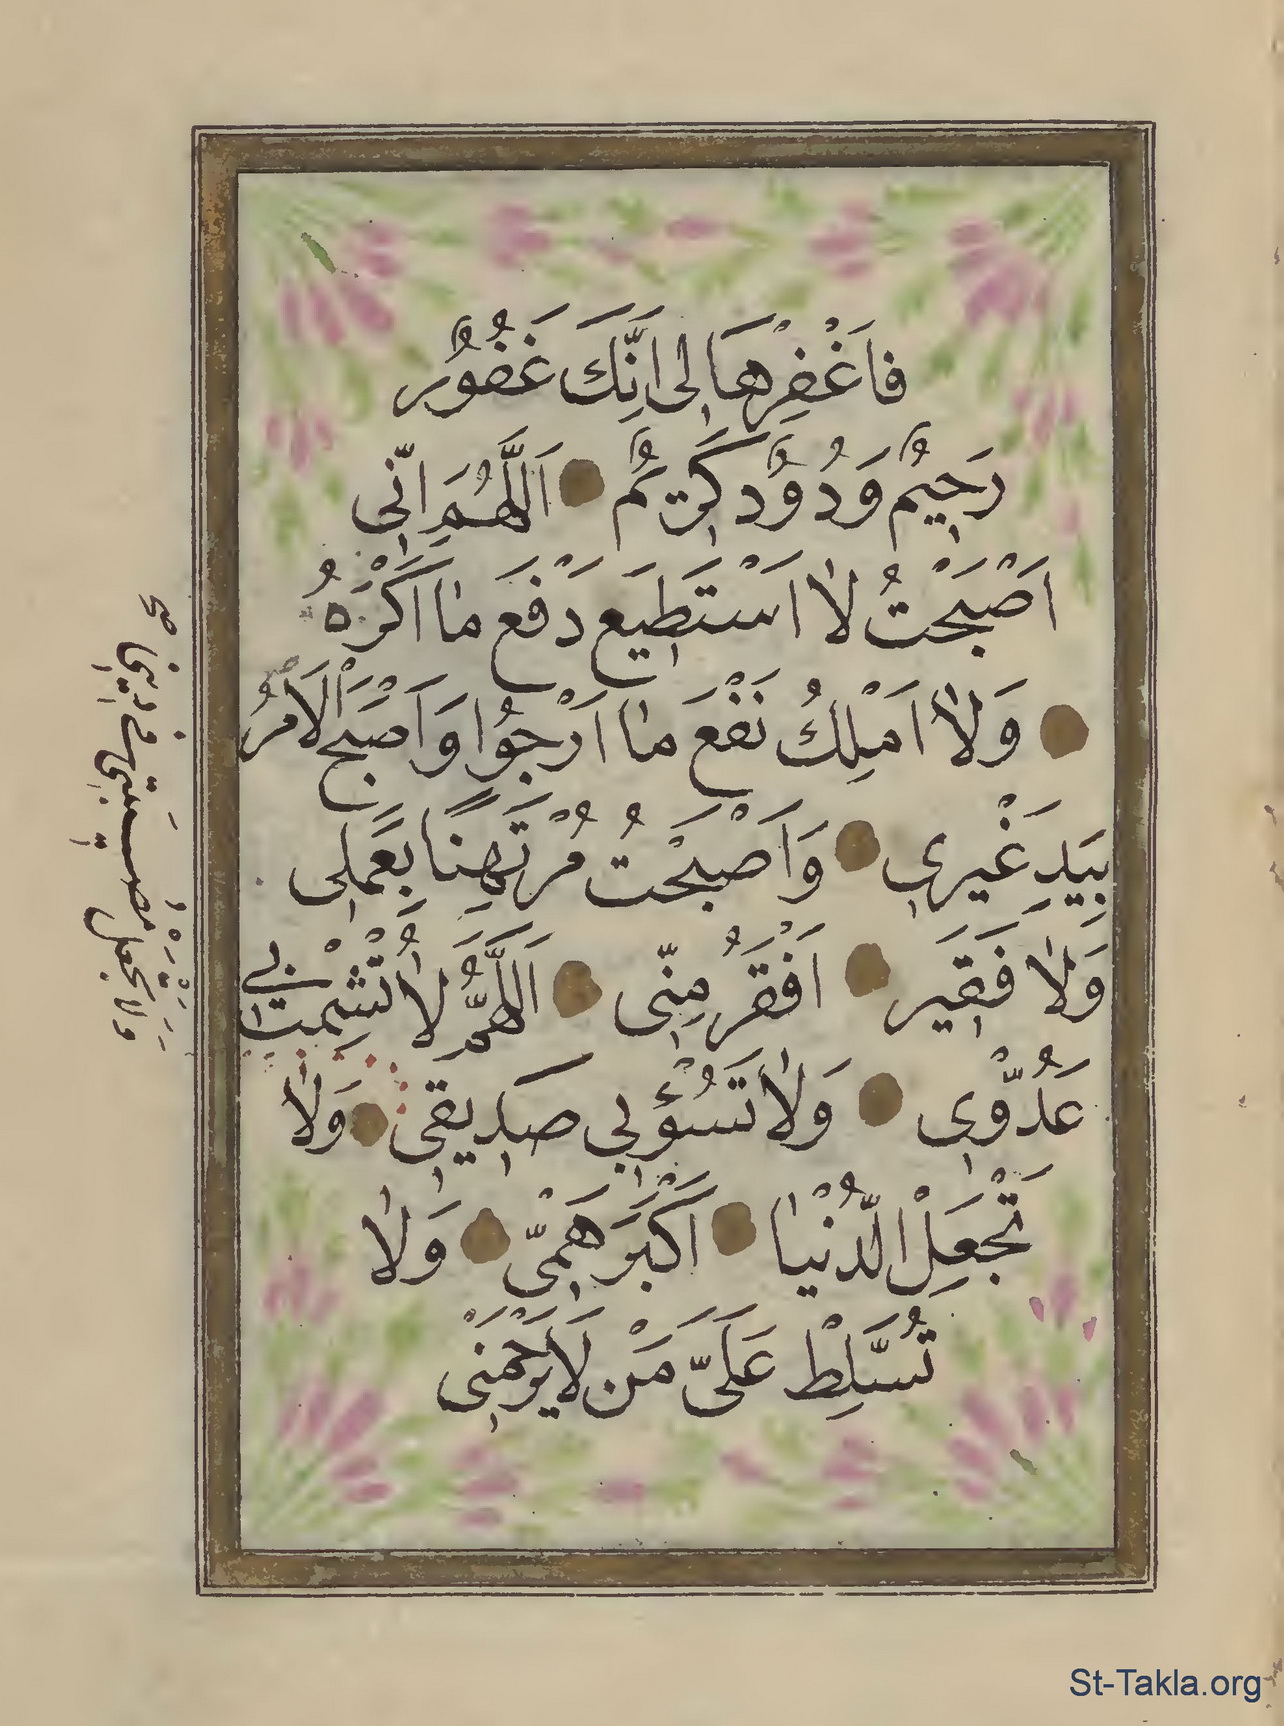 فَاغْفِرْهَا لِى اِنَّكَ غَفُوْرٌ
رَحِيْمٌ وَدُوْدٌ كَرِيْمٌ اَللّٰهُمَّ اِنِّى
اَصْبَحْتُ لَا اَسْتَطِيْعُ دَفْعَ مَا اَكْرَهُ
وَلَا اَمْلِكُ نَفْعَ مَا اَرْجُوْا وَاَصْبَحَ الْاَمْرُ
بِيَدِ غَيْرِى وَاَصْبَحْتُ مُرْتَهِنًا بِعَمَلِى
وَلَا فَقِيْرَ اَفْقَرُ مِنِّى اَللّٰهُمَّ لَا تُشْمِتْ بِى
عَدُوِّى وَلَا تَسُؤْ بِى صَدِيْقِى وَلَا
تَجْعَلِ الدُّنْيَا اَكْبَرَ هَمِّى وَلَا
تُسَلِّطْ عَلَىَّ مَنْ لَا يَرْحَمُنِى
ولا تجعل مصيبتى فى دينى صح
St-Takla.org